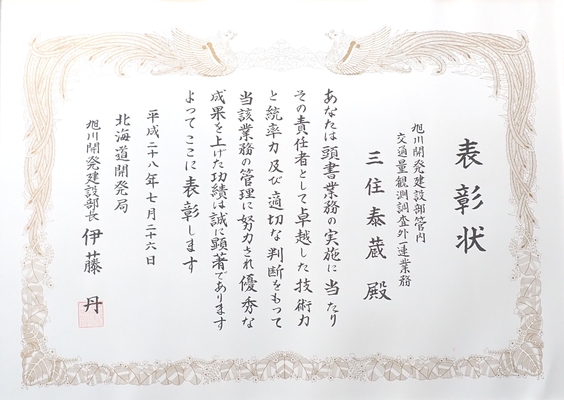 表彰状
旭川開発建設部管内
交通量観測調査外一連業務
三住泰蔵殿
あなたは頭書業務の実施に当たり
その責任者として卓越した技術力
と統率力及び適切な判断をもって
当該業務の管理に努力され優秀な
成果を上げた功績は誠に顕著であります
よってここに表彰します
平成二十八年七月二十六日
北海道開発局
旭川開発建設部長 伊藤丹